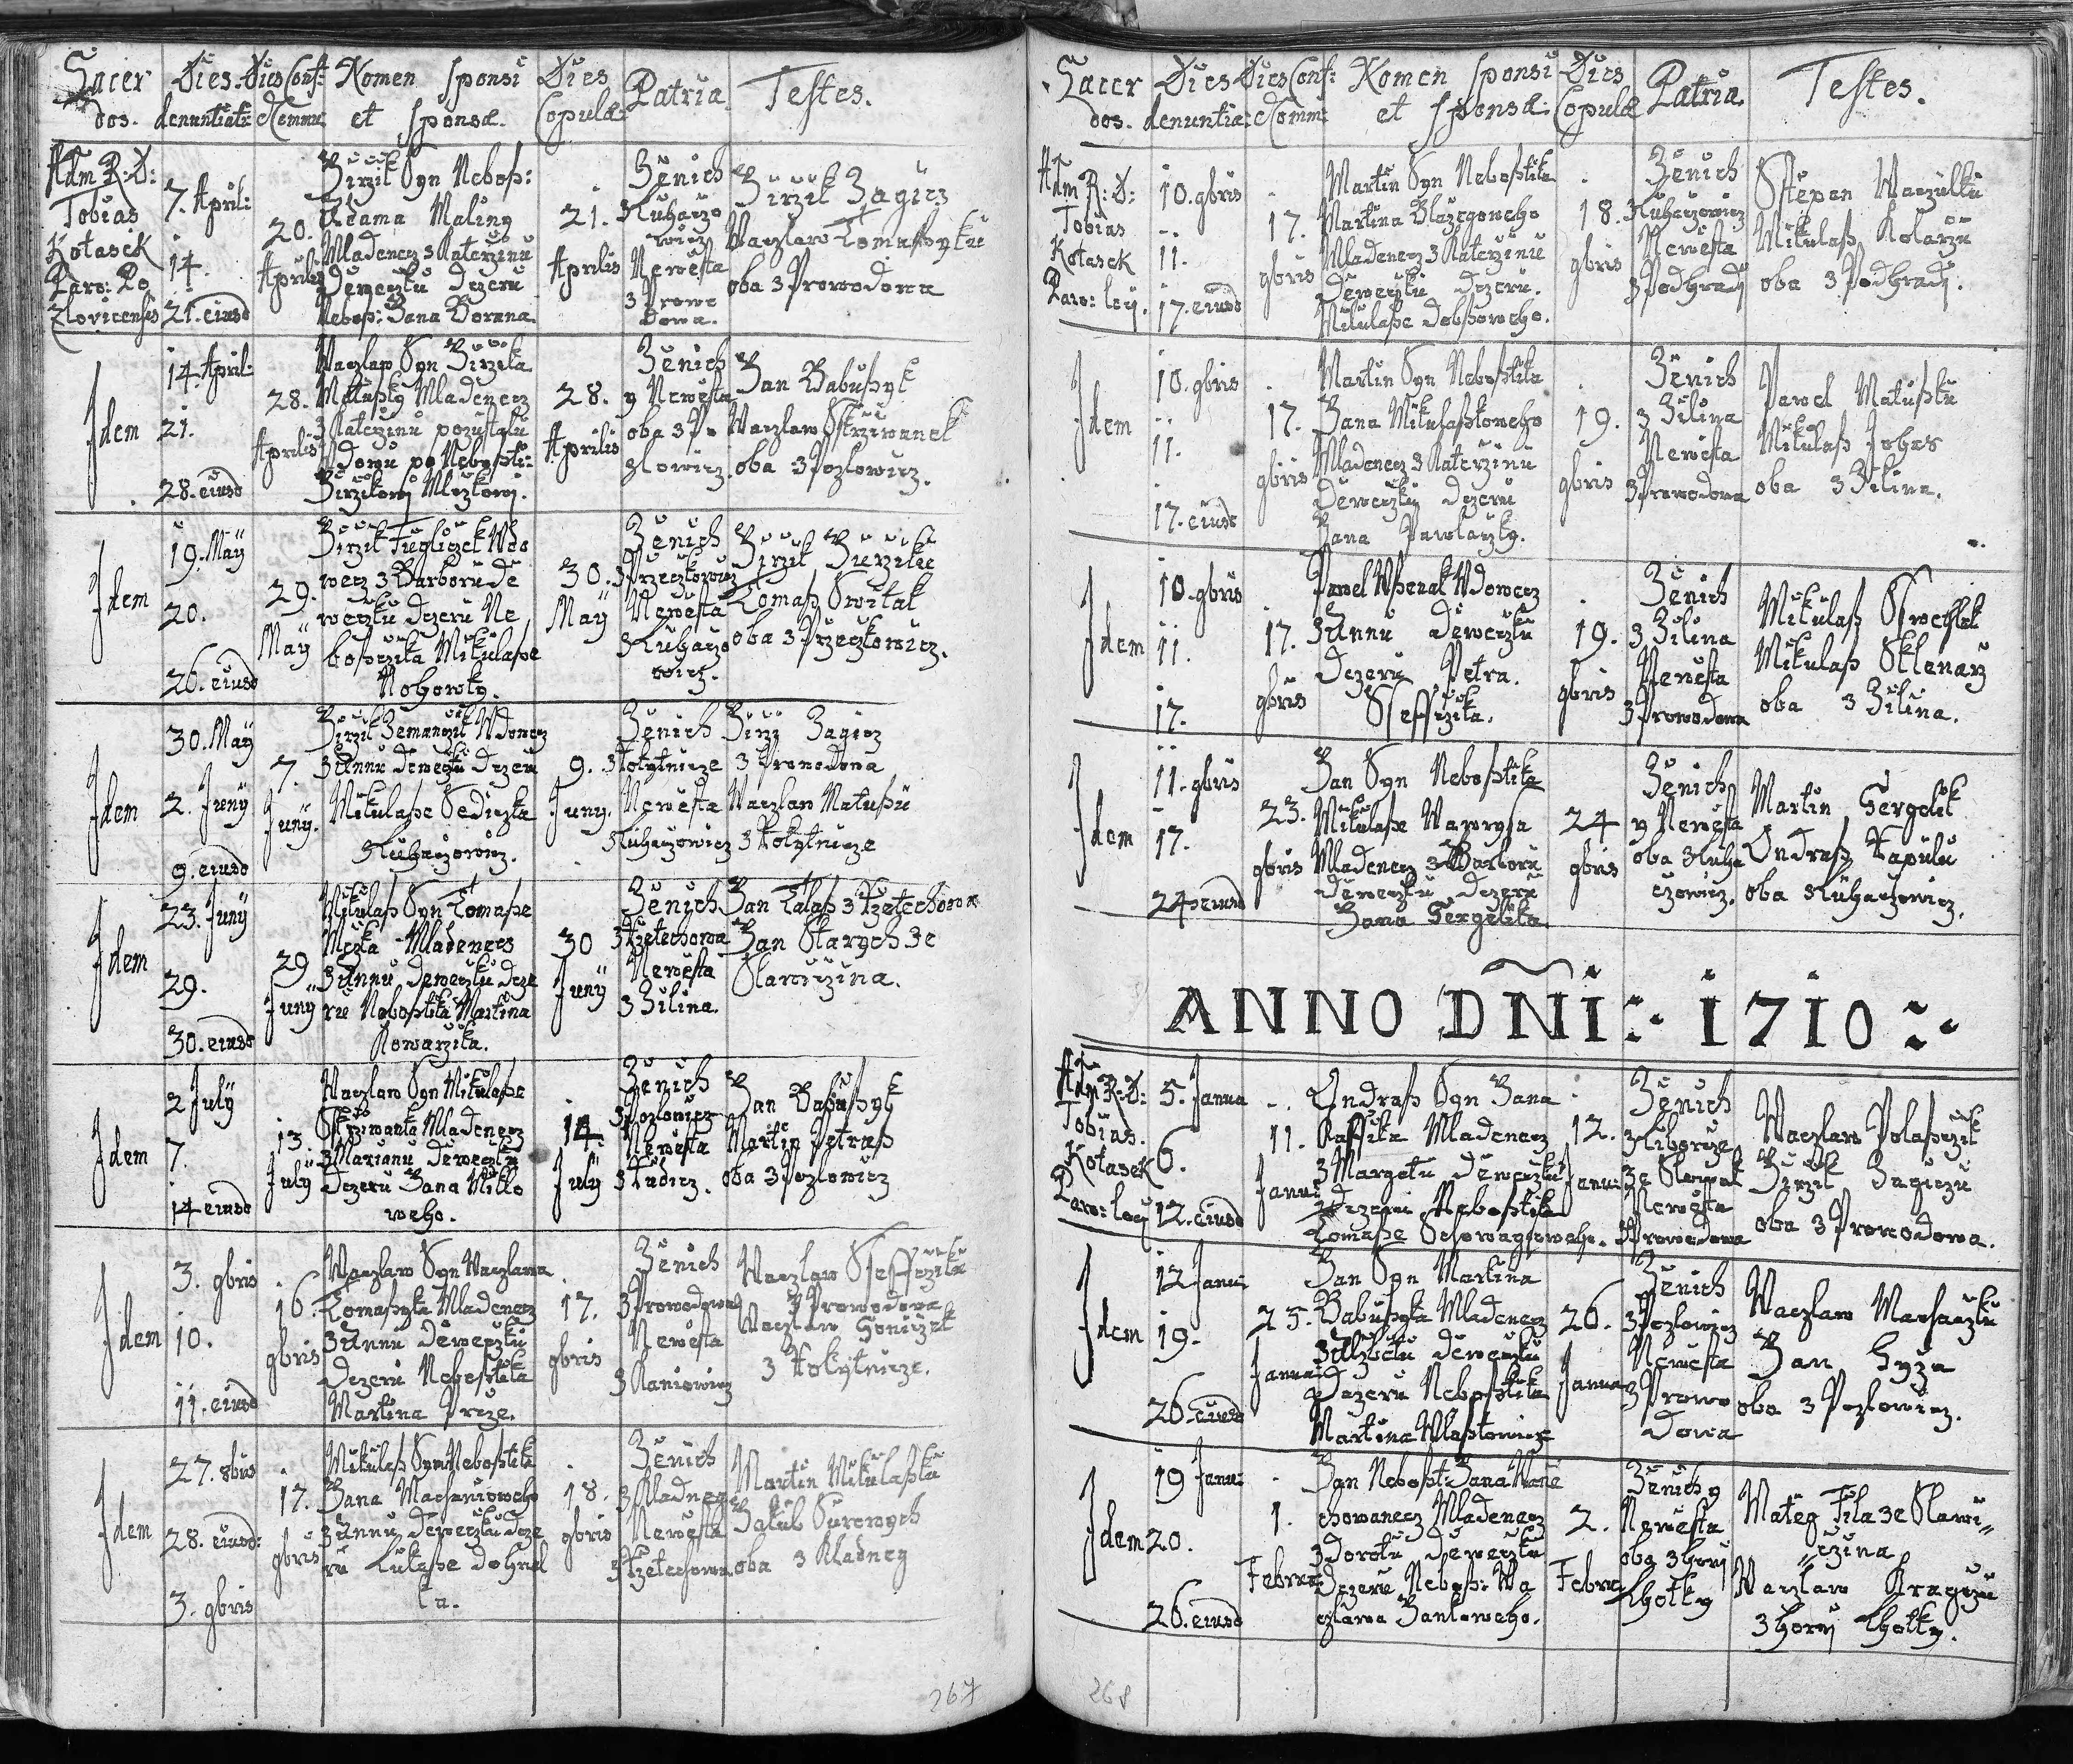 Sacer dos.
Dies. denuntiati:
Dies Conf: et Commu:
Nomen sponsi et sponsæ.
Dies Copulæ
Patria.
Testes.
Adm R: D:
Tobias
Kotasek
Paro: Po
zlovicensis
7. April:
14.
21. eiusd
20.
Aprilis
Girzik Syn Nebosß:
Adama Maliny
Mladenecz z Katerzinu
Dewecžku dczeru
Nebosß: Jana Borana
21.
Aprilis
Ženich
z Kuhaczo
wicz
Newěsta
z Prowo
dowa.
Girzik Zagicz
Waczlaw Tomassyku
oba z Prowodowa
Idem
14. April:
21.
28. eiusd
28.
Aprilis
Waczlaw Syn Girzika
Matussky Mladenecz
z Katerzinu pozustalu
Wdowu po Nebosstí:
Girzikowj Mlczkowj.
28.
Aprilis
Ženich
y Newěsta
oba z Po
zlowicz.
Jan Babussyk
Waczlaw Strziwanek
oba z Pozlowicz.
Idem
19. Maÿ
20.
26. eiusd
29.
Maÿ
Girzik Fügliczek Wdo
wecz z Barboru de
weczku dczeru Ne
bosscžika Mikulasse
Nohowky.
30.
Maÿ
Ženich
z Przeczkowicz
Newěsta
z Kuhaczo
wicz.
Girzik Girzikü
Tomaß Switak
oba z Przeczkowicz.
Idem
30. Maÿ
2. Junÿ
9. eiusd
7.
Junÿ.
Girzik Zemanczik Wdowecz
z Annu dewecžku dczeru
Mikulasse Sediczka
z Kuhaczowicz.
9.
Juny.
Ženich
z Kokytnicze
Newěsta
z Kuhaczowicz
Girzi Zagicz
z Prowodowa
Waczlaw Matussü
z Kokytnicze
Idem
23. Junÿ
29.
30. eiusd
29
Junÿ
Mikulaß Syn Tomasse
Mladenecz
z Annu dewecžku dcze
ru Nebosstika Martina
Kowarzika.
30
Junÿ
Ženich
z Rzetechowa
Newěsta
z Zilina.
Jan Talaß z Rzetechowa
Jan Starych ze
Slawiczina.
Idem
2 Julÿ
7.
14 eiusd
13.
Julÿ
Waczlaw Syn Mikulasse
Strziwanka Mladenecz
z Marianu Dewecžku
Dczeru Jana Mikło
weho.
14.
Julÿ
Ženich
z Pozlowicz
Newěsta
z Rudicz.
Jan Babussyk
Martin Petraß
oba z Pozlowicz
Idem
3. 9bris
10.
11. eiusd
16.
9bris
Waczlaw Syn Waczlawa
Tomassyka Mladenecz
z Annu Dewecžku
Dczeru Nebosstika
Martina
17.
9bris
Ženich
z Prowodowa
Newěsta
z Kaniowicz
Waczlaw Steffczika
z Prowodowa
Waczlaw Honiczek
z Kokytnicze.
Idem
27. 8bris
28. eiusd:
3. 9bris
17.
9bris
Mikulaß Syn Nebosstika
Jana Machanioweho
z Annu Dewecžku dcze
ru Lukasse dohnal
ka.
18.
9bris
Ženich
z Kladney
Newěsta
z Rzetechowa
Martin Mikulasskü
Jakub Surowych
oba z Kladney
267
Sacer dos.
Dies denuntia:
Dies Conf: et Comm:
Nomen sponsi et sponsæ:
Dies Copulæ
Patria.
Testes.
Adm R: D:
Tobias
Kotasek
Paro: loÿ.
10. 9bris
11.
17. eiusd
17.
9bris
Martin Syn Nebosstika
Martina Blazegoweho
Mladenecz z Katerzinu
Dewecžku dczeru.
Mikulasse dobssoweho.
18.
9bris
Ženich
z Kuhaczowicz
Newěsta
z Podhradj
Stěpan Waczulkü
Mikulaß Kolarzü
oba z Podhradj.
Idem
10. 9bris
11.
17. eiusd
17.
9bris
Martin Syn Nebosstika
Jana Mikulasskoweho
Mladenecz z Katerzinu
Dewecžku dczeru
Jana Pawlaczky.
19.
9bris
Ženich
z Zilina
Newěsta
z Prowodowa
Pawel Matusskü
Mikulaß Jobas
oba z Zilina.
Idem
10. 9bris
11.
17.
17.
9bris
Pawel Wherak Wdowecz
z Annu dewecžku
Dczeru Petra.
Steffczika.
19.
9bris
Ženich
z Zilina
Newěsta
z Prowodowa
Mikulaß
Mikulaß Sklenarz
oba z Zilina.
Idem
11. 9bris
17.
24 eiusd
23.
9bris
Jan Syn Nebosstika
Mikulasse Wawrysa
Mladenecz z Barboru
Dewecžku dczeru
Jana Gergelika.
24
9bris
Ženich
y Newěsta
oba z Kuha
czowicz.
Martin Gergelik
Ondraß Kapulü
oba z Kuhaczowicz.
ANNO DÑI: 1710
Adm R: D:
Tobias.
Kotasek
Paro: loÿ
5. Janua
6.
12. eiusd
11.
Janu:
Ondraß Syn Jana
Raffika Mladenecz
z Margetu Dewecžku
Dczeru Nebosstika
Tomasse
12.
Janu:
Ženich
z Liborcze
ze Slowak
Newěsta
z Prowodowa
Waczlaw Polasczik
Girzik Zagiczü
oba z Prowodowa.
Idem
12 Janu:
19.
26. eiusd
25.
Janua
Jan Syn Martina
Babussyka Mladenecz
z Alzbětu dewecžku
Dczeru Nebosstika
Martina
26.
Janua
Ženich
z Pozlowicz
Newěsta
z Prowo
dowa
Waczlaw Machaczkü
Jan Hyza
oba z Pozlowicz.
Idem
19 Janu:
20.
26. eiusd
1.
Februa
Jan Nebosst: Jana Wane
chowanecz Mladenecz
z Dorotu Dewecžku
Dczeru Neboss: Wa
czlawa Jankoweho.
2.
Februa
Ženich y
Newěsta
oba z hornj
Lhotky
Mateg Fila ze Slawi
czina
Waczlaw Kragczü
z hornj Lhotky.
268